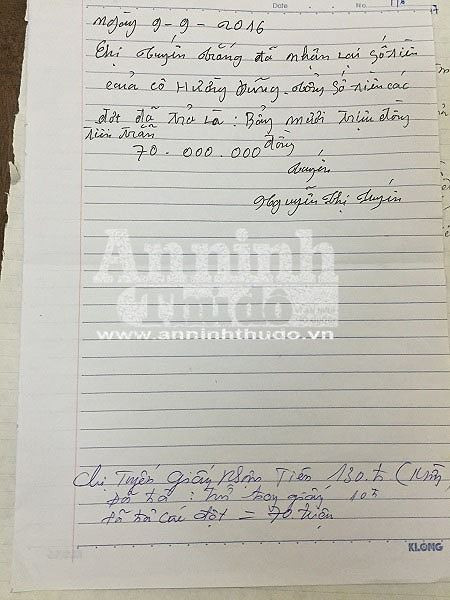 Date No.
ngày 9-9-2016
Chị Tuyến Trắng đã nhận lại số tiền
của cô Hường Dũng. tổng số tiền các
đợt đã trả là: Bảy mươi triệu đồng
tiền trẵn
70.000.000 đồng
Tuyến
Nguyễn Thị Tuyến
An ninh
thủ đô
www.anninhthudo.vn
Chị Tuyến Giấy Nhận Tiền 130.tr
Đã trả : giấy 10tr
Đã trả các đợt = 70 triệu
KLONG